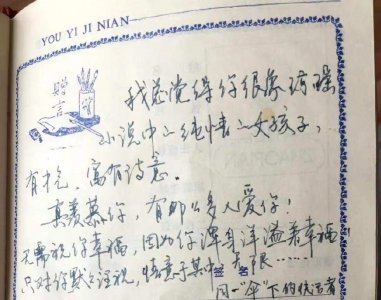 YOU YI JI NIAN
赠言
我总觉得你很像琼瑶
小说中的纯情的女孩子,
有才,富有诗意.
真羡慕你,有那么多人爱你!
无需祝你幸福,因为你浑身洋溢着幸福
只好默默注视,情意
无限……
签名
同一"伞"下的